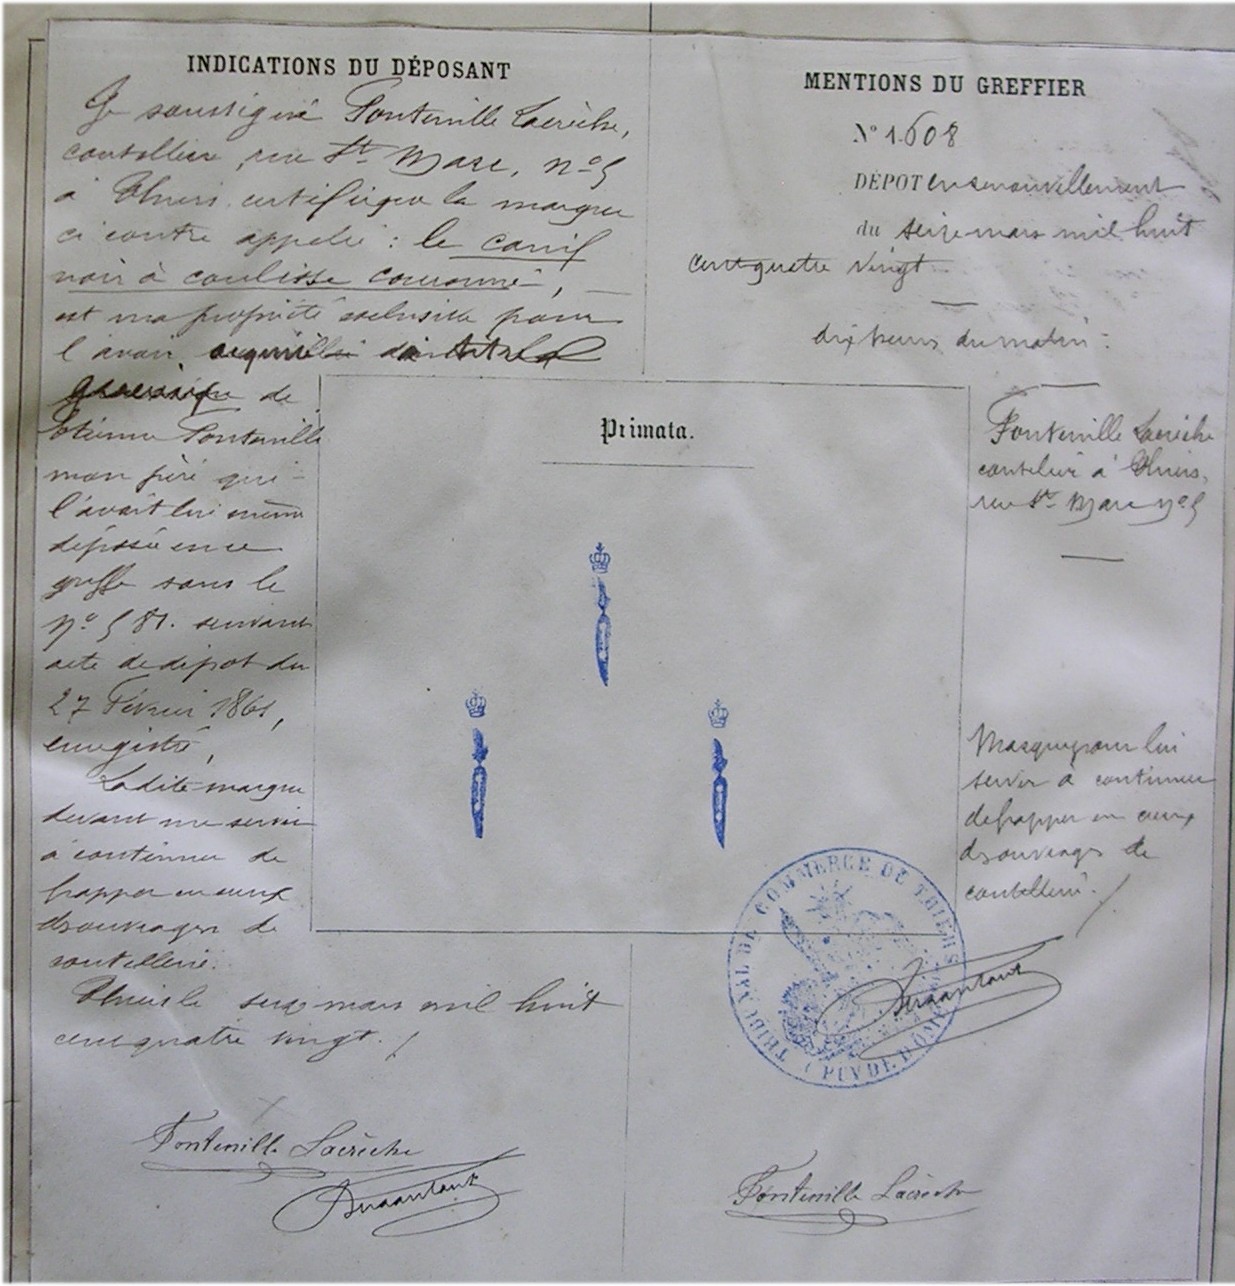 INDICATIONS DU DÉPOSANT
Je soussigné Fontenille Lacrèche,
coutellier, rue St Marc, no 5
à Thiers, certifie que la marque
ci contre appelée : le canif
noir à coulisse couronné,
est ma propriété exclusive pour
l'avoir
de
Etienne Fontenille
mon père qui
l'avait lui même
déposée en ce
greffe sous le
No 581. suivant
acte de dépot du
27 Février 1861,
enregistré,
Ladite marque
devant me servir
à continuer de
frapper en creux
des ouvrages de
coutellerie.
Thiers le seize mars mil huit
cent quatre vingt.
Fontenille Lacrèche
MENTIONS DU GREFFIER
No 1608
DÉPOT en renouvellement
du seize mars mil huit
cent quatre vingt
dix heures du matin :
Primata.
Fontenille Lacrèche
coutelier à Thiers,
rue St Marc No 5
Marque pour lui
servir à continuer
de frapper en creux
des ouvrages de
coutellerie.
TRIBUNAL DE COMMERCE DE THIERS
(PUY DE DÔME)
Fontenille Lacrèche